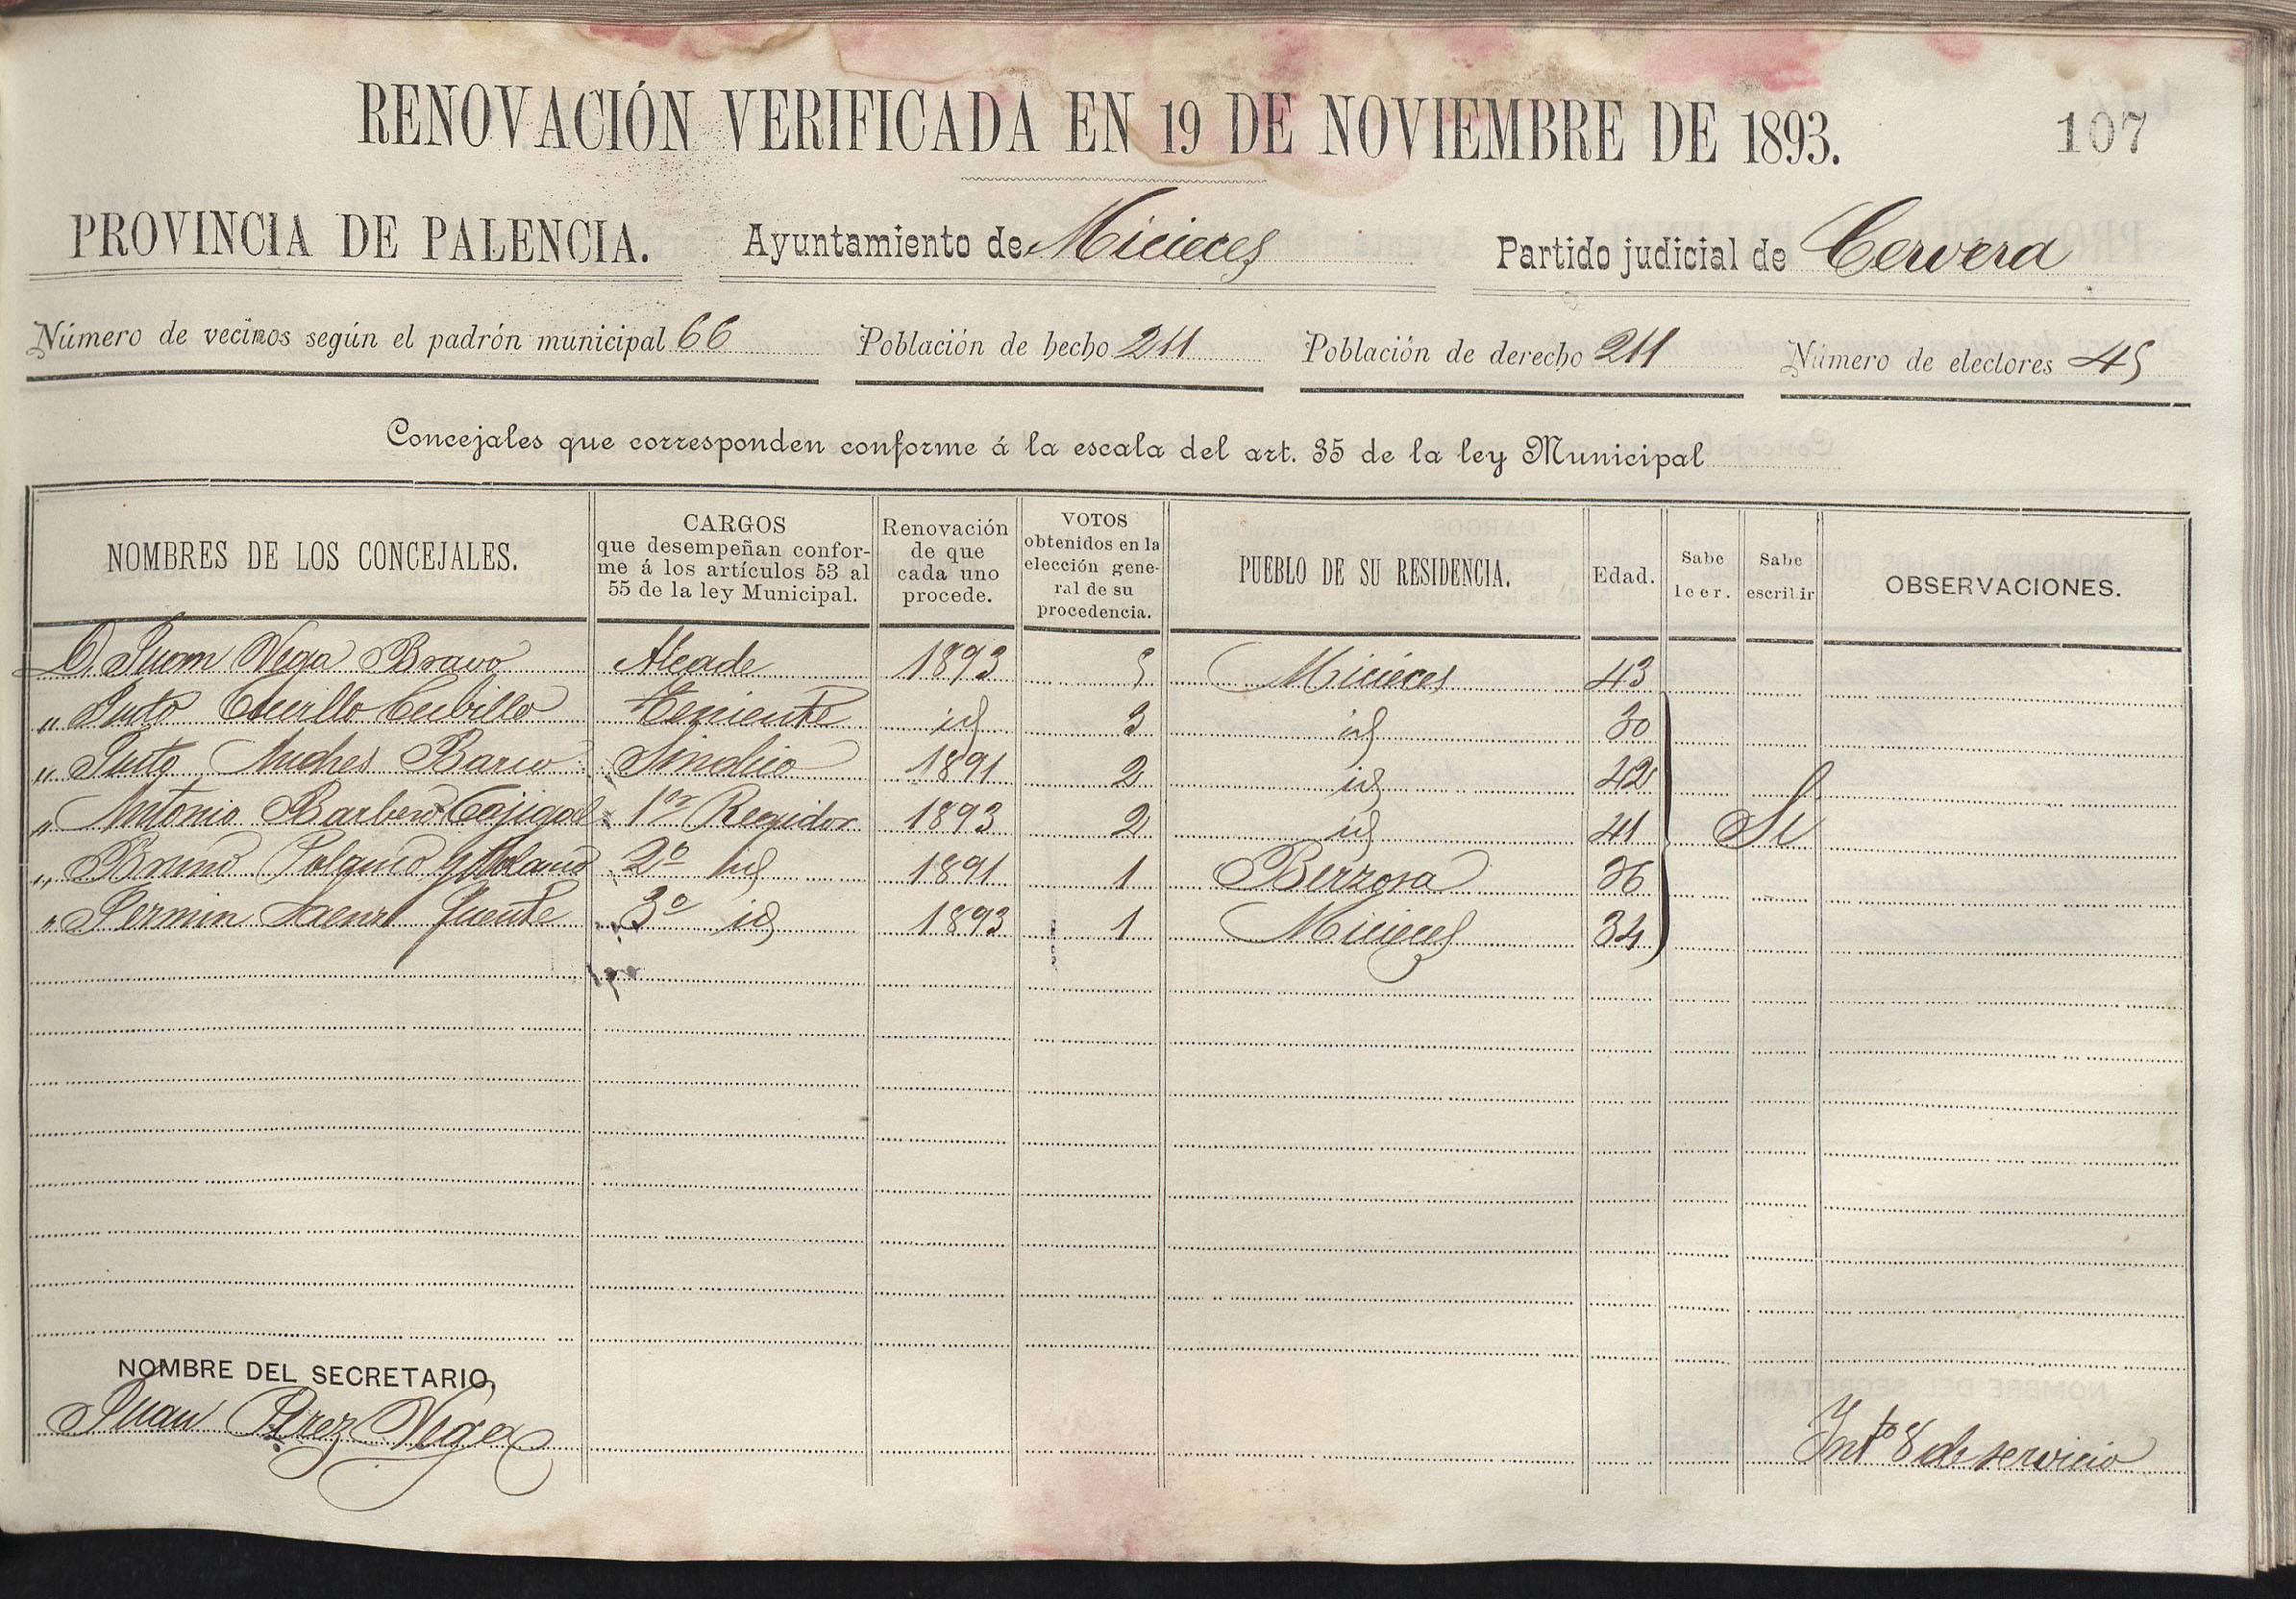 RENOVACIÓN VERIFICADA EN 19 DE NOVIEMBRE DE 1893. 107
PROVINCIA DE PALENCIA. Ayuntamiento de Micieces Partido judicial de Cervera
Número de vecinos según el padrón municipal 66 Población de hecho 211 Población de derecho 211 Número de electores 45
Concejales que corresponden conforme á la escala del art. 35 de la ley Municipal
NOMBRES DE LOS CONCEJALES.
CARGOS
que desempeñan confor-
me á los artículos 53 al
55 de la ley Municipal.
Renovación
de que
cada uno
procede.
VOTOS
obtenidos en la
elección gene-
ral de su
procedencia.
PUEBLO DE SU RESIDENCIA.
Edad.
Sabe
leer.
Sabe
escribir
OBSERVACIONES.
D. Juan Vega Bravo Alcade 1893 5 Micieces 43
" Justo Cubillo Teniente id 3 id 30
" Justo Andres Barco Sindico 1891 2 id 42
" Antonio Barbero 1er Regidor 1893 2 id 41 Si
" Bruno Polanco y Polanco 2º id 1891 1 Berzosa 36
" Fermin Saenz Fuente 3º id 1893 1 Micieces 34
NOMBRE DEL SECRETARIO,
Juan Perez Vega
8 de servicio